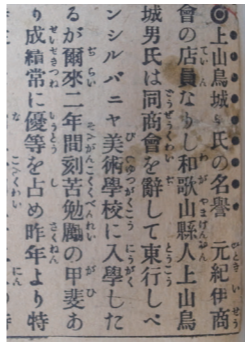 ◎上山鳥城男氏の名譽　元紀伊商
會の店員なりし和歌山縣人上山鳥
城男氏は同商會を辭して東行しペ
ンシルバニヤ美術學校に入學した
るが爾來二年間刻苦勉勵の甲斐あ
り成績常に優等を占め昨年より特